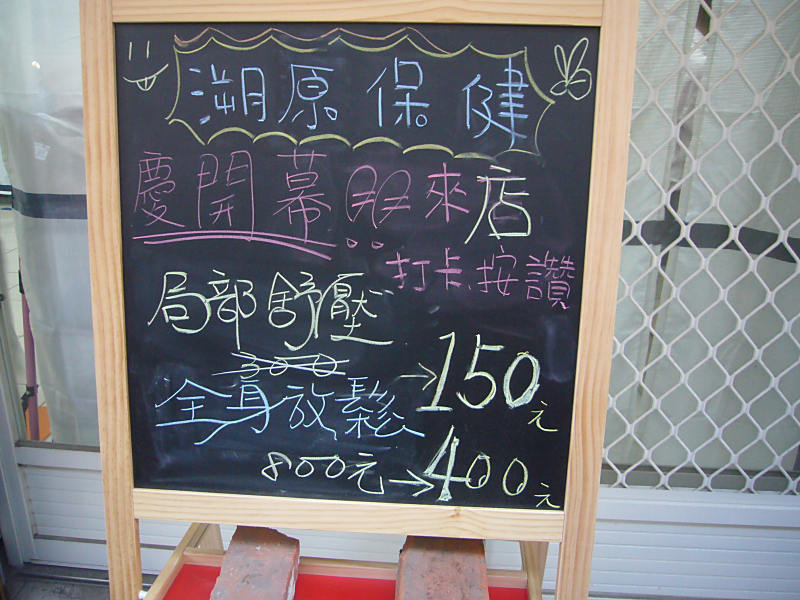 溯原保健
慶開幕!!來店
打卡、按讚
局部舒壓
300→150元
全身放鬆
800元→400元